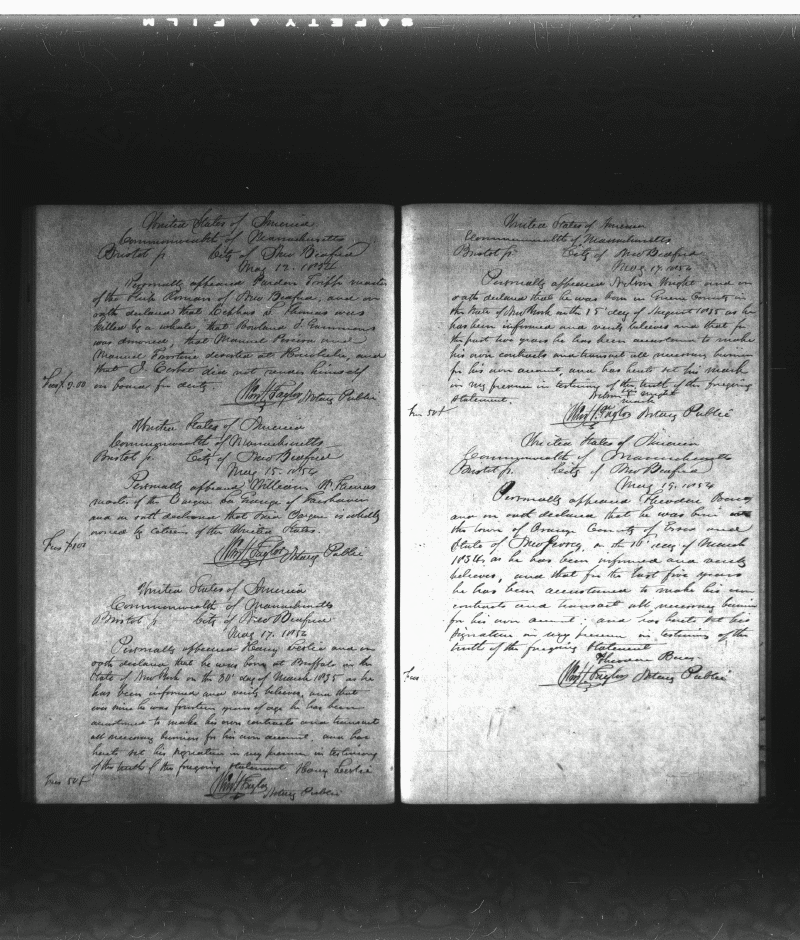 SAFETY A FILM
United States of America
Commonwealth of Massachusetts
Bristol ss. City of New Bedford
May 12. 1854
Personally appeared Pardon Tripp master
of the Ship Roman of New Bedford, and on
oath declared that Cephas S. Thomas was
killed by a whale, that Rowland S.
was drowned, that Manuel and
Manuel deserted at and
that J. did not render himself
on board for duty.
Fees $2.00
Wm H Taylor Notary Public
United States of America
Commonwealth of Massachusetts
Bristol ss. City of New Bedford
May 15. 1854
Personally appeared William W. Thomas
master of the Barque La Grange of Fairhaven
and on oath declared that said Barque is wholly
owned by citizens of the United States.
Fees $1.00
Wm H Taylor Notary Public
United States of America
Commonwealth of Massachusetts
Bristol ss. City of New Bedford
May 17. 1854
Personally appeared Henry Leslie and on
oath declared that he was born at Buffalo in the
State of New York on the 30th day of March 1835 as he
has been informed and verily believes, and that
since he was fourteen years of age he has been
accustomed to make his own contracts and transact
all necessary business for his own account, and has
hereto set his signature in my presence in testimony
of the truth of the foregoing statement Henry Leslie
Fees 50¢
Wm H Taylor
Notary Public
United States of America
Commonwealth of Massachusetts
Bristol ss. City of New Bedford
May 17. 1854
Personally appeared Nelson Wright and on
oath declared that he was born in Greene County in
the State of New York on the 15th day of August 1835 as he
has been informed and verily believes and that for
the past two years he has been accustomed to make
his own contracts and transact all necessary business
for his own account, and has hereto set his mark
in my presence in testimony of the truth of the foregoing
statement. Nelson X Wright
mark
Fees 50¢
Wm H. Taylor Notary Public
United States of America
Commonwealth of Massachusetts
Bristol ss. City of New Bedford
May 19. 1854
Personally appeared Theodore
and on oath declared that he was born in
the town of Orange County of Essex and
State of New Jersey, on the 16th day of March
1834, as he has been informed and verily
believes, and that for the last five years
he has been accustomed to make his own
contracts and transact all necessary business
for his own account; and has hereto set his
signature in my presence in testimony of the
truth of the foregoing statement
Theodore
Fees
Wm H Taylor Notary Public